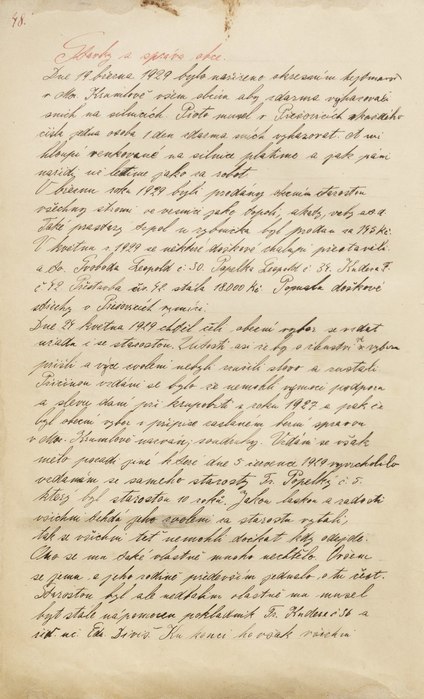 48.
Stavby a správa obce.
Dne 19 března 1929 bylo nařízeno okresním hejtmanem
v Mor. Krumlově všem obcím aby zdarma vyhazovali
snih na silnicích. Proto musel v Přešovicích z každého
čísla jedna osoba 1 den zdarma snich vyhazovat. A mi
hloupí venkované na silnice platíme a jak páni
nařídí už letíme jako za robot.
V březnu roku 1929 byli prodány obcením starostou
všechny stromi ve vesnice jako topoli, akáty, vrby a.t.d
Také prastarý topol u rybníčka byl prodán za 745 Kč.
V květnu r. 1929 se některé doškové chalupy přestavěli
a to. Svoboda Leopold č. 30. Popelka Leopold č. 34. Kudera F.
č 42. Přestavba čís. 42. stála 18.000 Kč. Pomalu doškové
střechy v Přešovicích vymizí.
Dne 24 května 1929 chtěl celý obecní výbor se vzdat
úřadu i se starostou. Zlobosti asi že by o člunství ve výboru
přišli a více zvoleni nebyli vzali slovo a zůstali
Příčinou vzdání se bylo že nemohli vymoci podporu
a slevu daní při krupobití z roku 1927 a pak že
byl obecní výbor v přípise zaslaném berní správou
v Mor. Krumlově nazván, Vzdání se však
mělo pozadí jiné které dne 5 července 1929 vyvrcholilo
vzdáním se samého starosty Fr. Popelky č 5.
který byl starostou 10 roků. Jakou láskou a radostí
všichni tehda jeho zvolení za starostu vytali,
tak se všichni teť nemohli dočkat kdy odejde.
Ono se mu také vlastně mnoho nechtělo. Ovšem
se jemu a jeho rodině především jednalo o tu čest.
Starostou byl ale nedbalím vlastně mu musel
být stále nápomocen pokladník Fr. Kudera č 36 a
řid. uč. Ed. Diviš. Ku konci ho však všichni